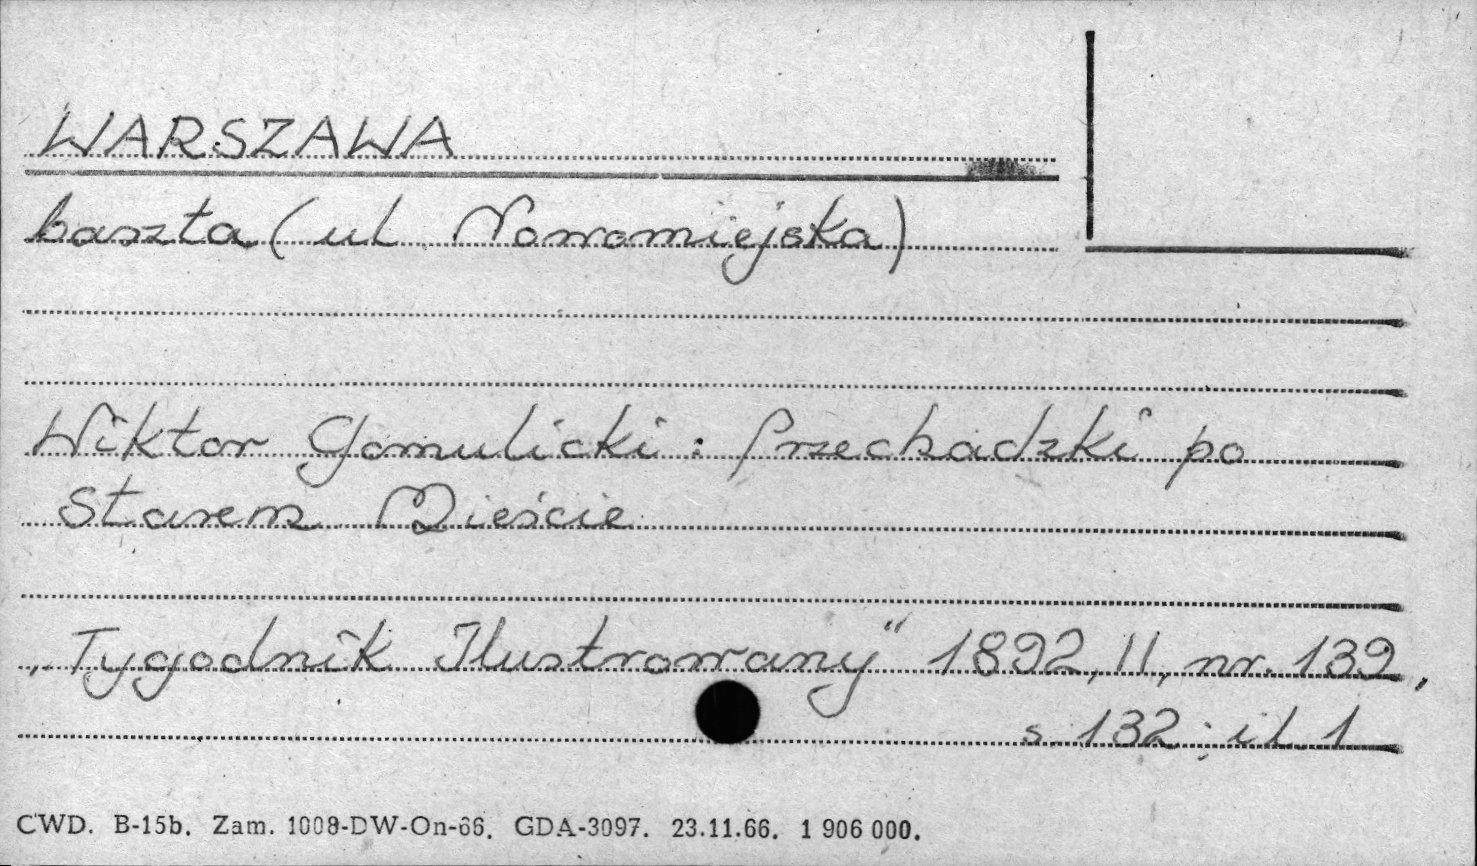 WARSZAWA
baszta (ul. Nowomiejska)
Wiktor Gomulicki: Przechadzki po
Starem Mieście
„Tygodnik Ilustrowany” 1892, II, nr. 139,
s. 132; il. 1
CWD. B-15b. Zam. 1008-DW-On-66. GDA-3097. 23.11.66. 1 906 000.